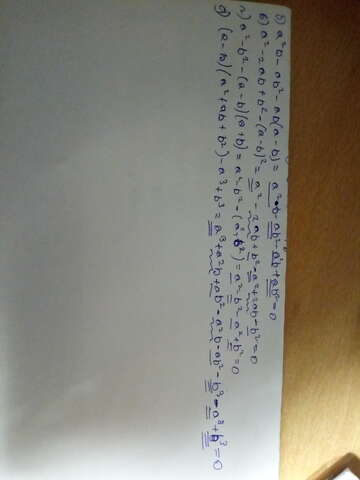 б) a²b - ab² - ab(a-b) = a²b - ab² - a²b + ab² = 0
в) a² - 2ab + b² - (a-b)² = a² - 2ab + b² - a² + 2ab - b² = 0
г) a² - b² - (a-b)(a+b) = a² - b² - (a² - b²) = a² - b² - a² + b² = 0
д) (a-b)(a² + ab + b²) - a³ + b³ = a³ + a²b + ab² - a²b - ab² - b³ - a³ + b³ = 0